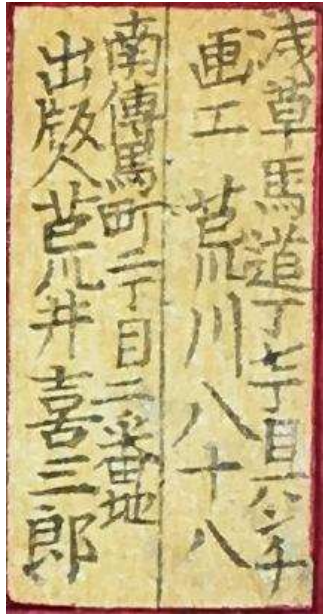 浅草馬道丁七丁目六番
画工 荒川八十八
南傳馬町二丁目二番地
出版人 荒井喜三郎